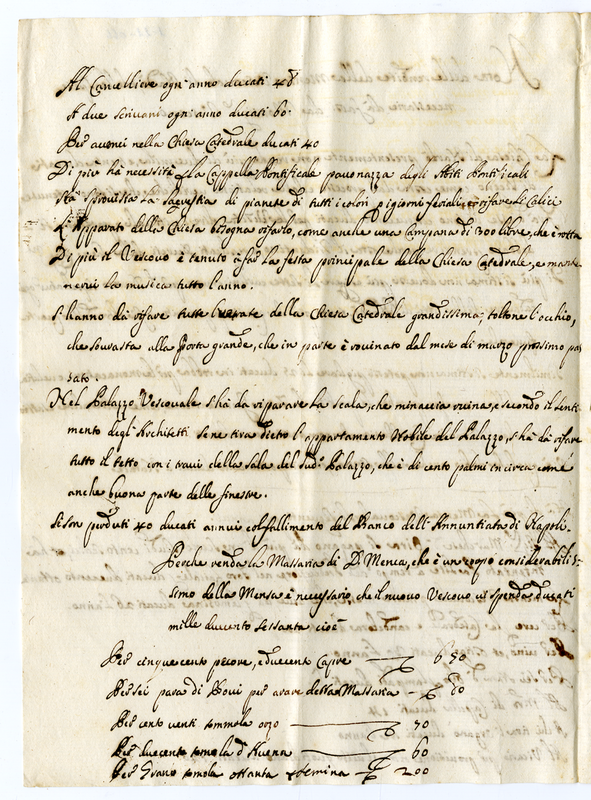 Al Cancelliere ogni anno ducati 48
A due scrivani ogni anno ducati 60.
Per avenei nella Chiesa Catedrale ducati 40
Di più hà necessità la Cappella Pontificale pavonazza degli Abiti Pontificali
stà sprovista la sagrestia di pianete di tutti i colori p i giorni feriali, e rifare li Calici
L'Apparato della Chiesa bisogna rifarlo, come anche una Campana di 300 libre, che è rotta
Di più il Vescovo è tenuto à far la festa principale della Chiesa Catedrale, e mante
nervi la musica tutto l'anno.
s'hanno dà rifare tutte l'vetrate della Chiesa Catedrale grandissima, toltone l'occhio,
che sovrasta alla Porta grande, che in parte è rovinato dal mese di marzo prossimo pas
sato.
Nel Palazzo Vescovale s'hà da riparare la scala, che minaccia ruina, e secondo il senti
mento degl'Architetti se ne tira dietro l'appartamento Nobile del Palazzo, s'hà dà rifare
tutto il tetto con i travi della sala del sud.o Palazzo, che è di cento palmi in circa come
anche buona parte delle finestre.
si son perduti 40 ducati annui col fallimento del Banco dell'Annuntiata di Napoli.
Perche renda la Massaria di D. Menca, che è un corpo considerabilis
simo della Mensa è necessario, che il nuovo Vescovo vi spenda ducati
mille ducento sessanta cioè
Per cinquecento pecore, e ducento Capre 650
Per sei para di Bovi per arare detta Massaria
Per cento venti tommola orzo 70
Per duecento tomola d'Avena 60
Per Grano tomola ottanta p semina 200